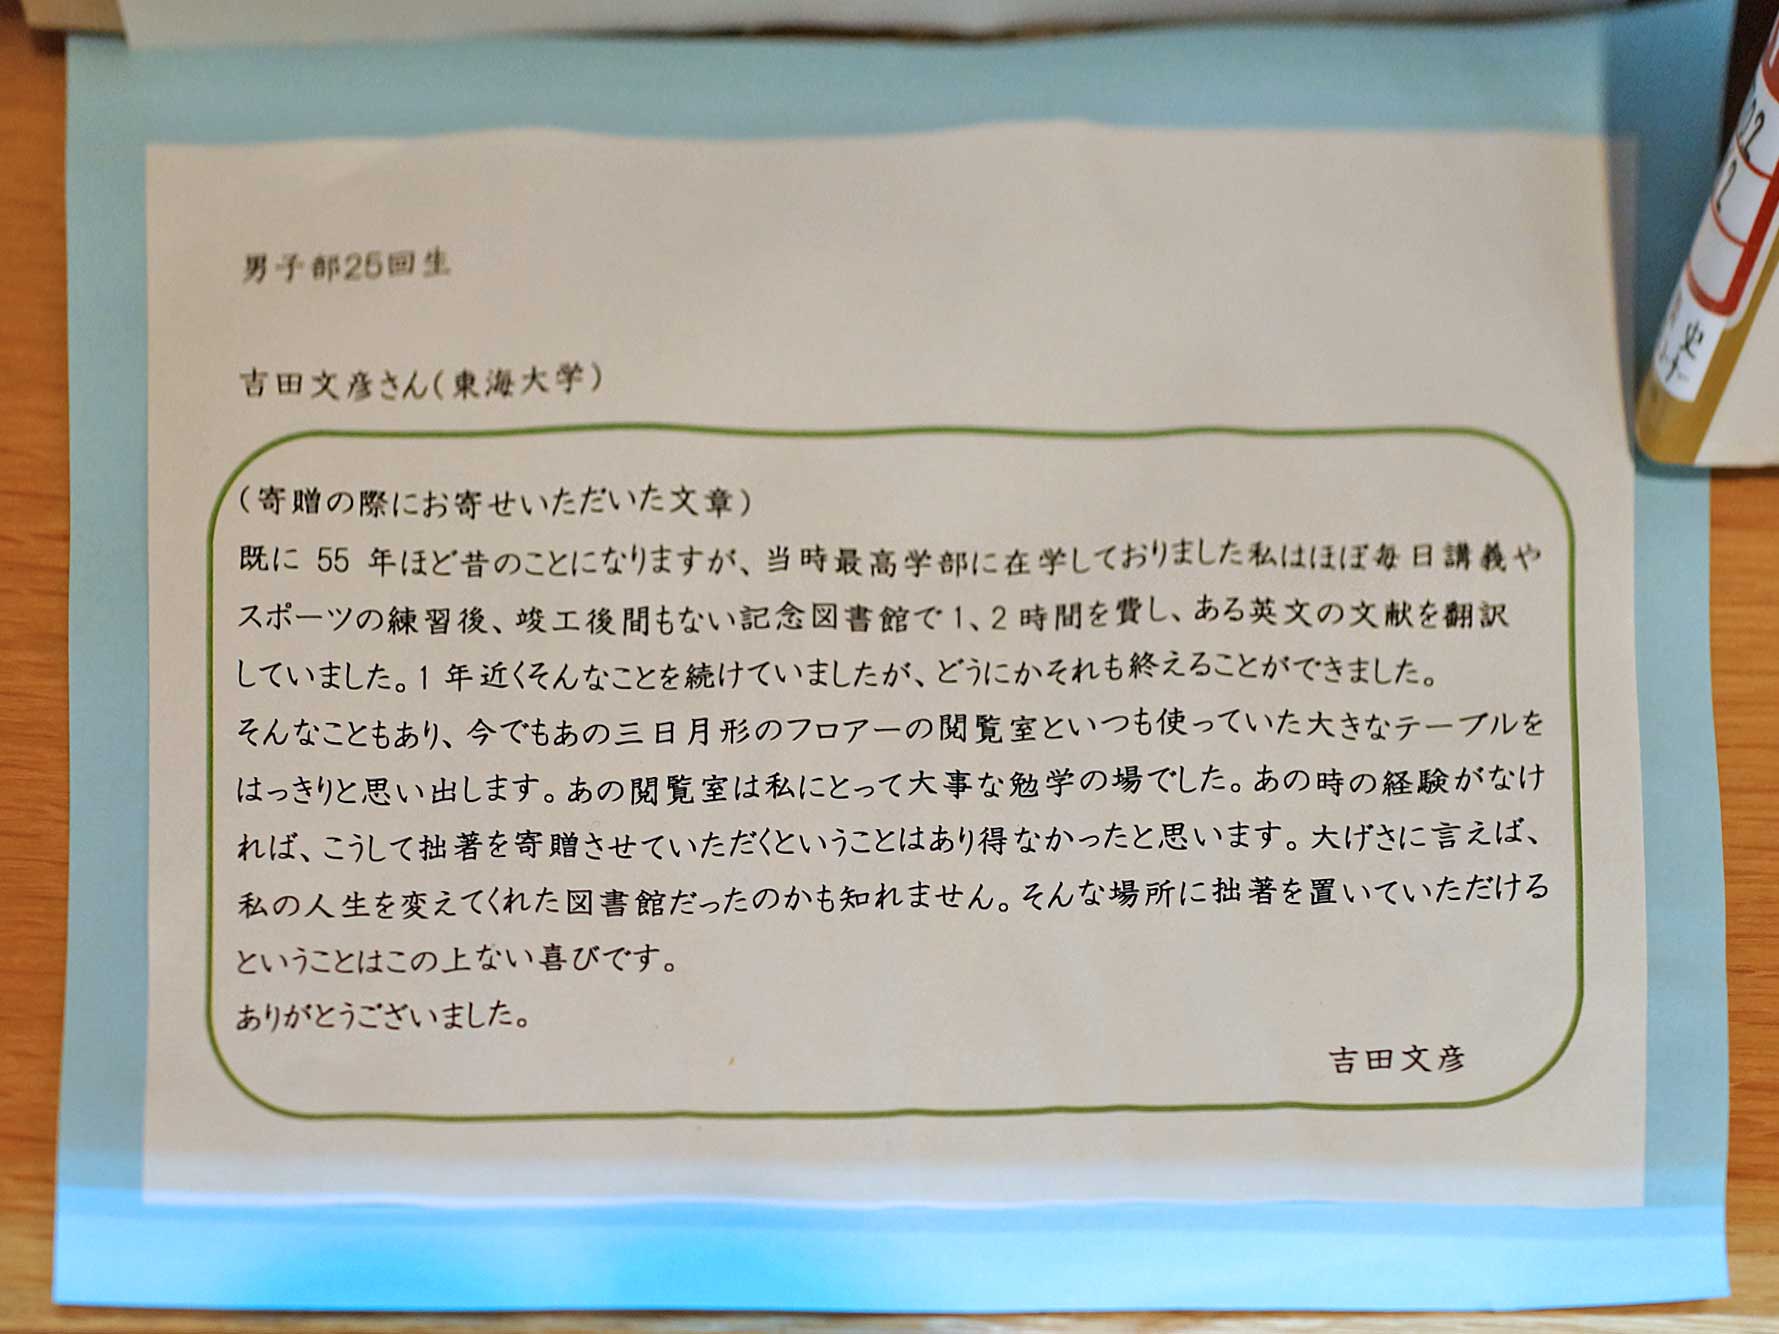 男子部25回生
吉田文彦さん(東海大学)
(寄贈の際にお寄せいただいた文章)
既に 55 年ほど昔のことになりますが、当時最高学部に在学しておりました私はほぼ毎日講義や
スポーツの練習後、竣工後間もない記念図書館で1、2時間を費し、ある英文の文献を翻訳
していました。1年近くそんなことを続けていましたが、どうにかそれも終えることができました。
そんなこともあり、今でもあの三日月形のフロアーの閲覧室といつも使っていた大きなテーブルを
はっきりと思い出します。あの閲覧室は私にとって大事な勉学の場でした。あの時の経験がなけ
れば、こうして拙著を寄贈させていただくということはあり得なかったと思います。大げさに言えば、
私の人生を変えてくれた図書館だったのかも知れません。そんな場所に拙著を置いていただける
ということはこの上ない喜びです。
ありがとうございました。
吉田文彦
史